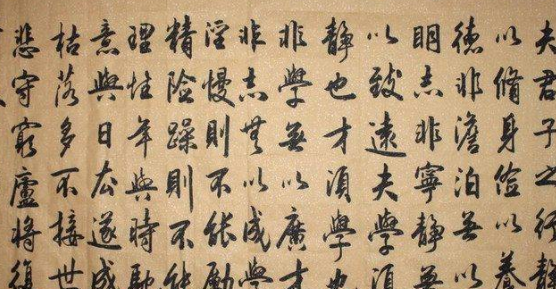 夫君子之行靜
以脩身儉以養
德非澹泊無以
明志非寧靜無
以致遠夫學須
靜也才須學也
非學無以廣才
非志無以成學
淫慢則不能勵
精險躁則不能
理性年與時馳
意與日去遂成
枯落多不接世
悲守窮廬將復